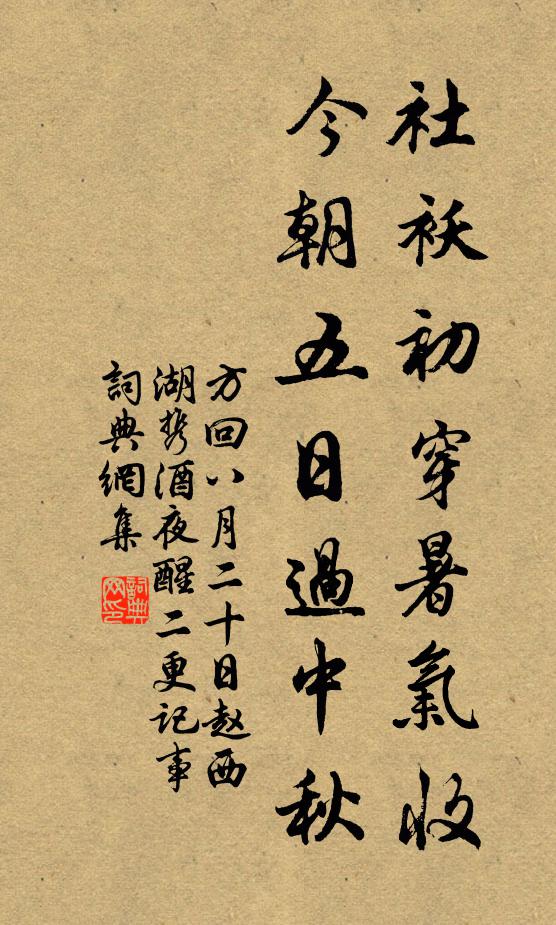 社袄初穿暑氣收
今朝五日過中秋
方回八月二十日赵西
湖携酒夜醒二更记事
詞典網集
詞典網印